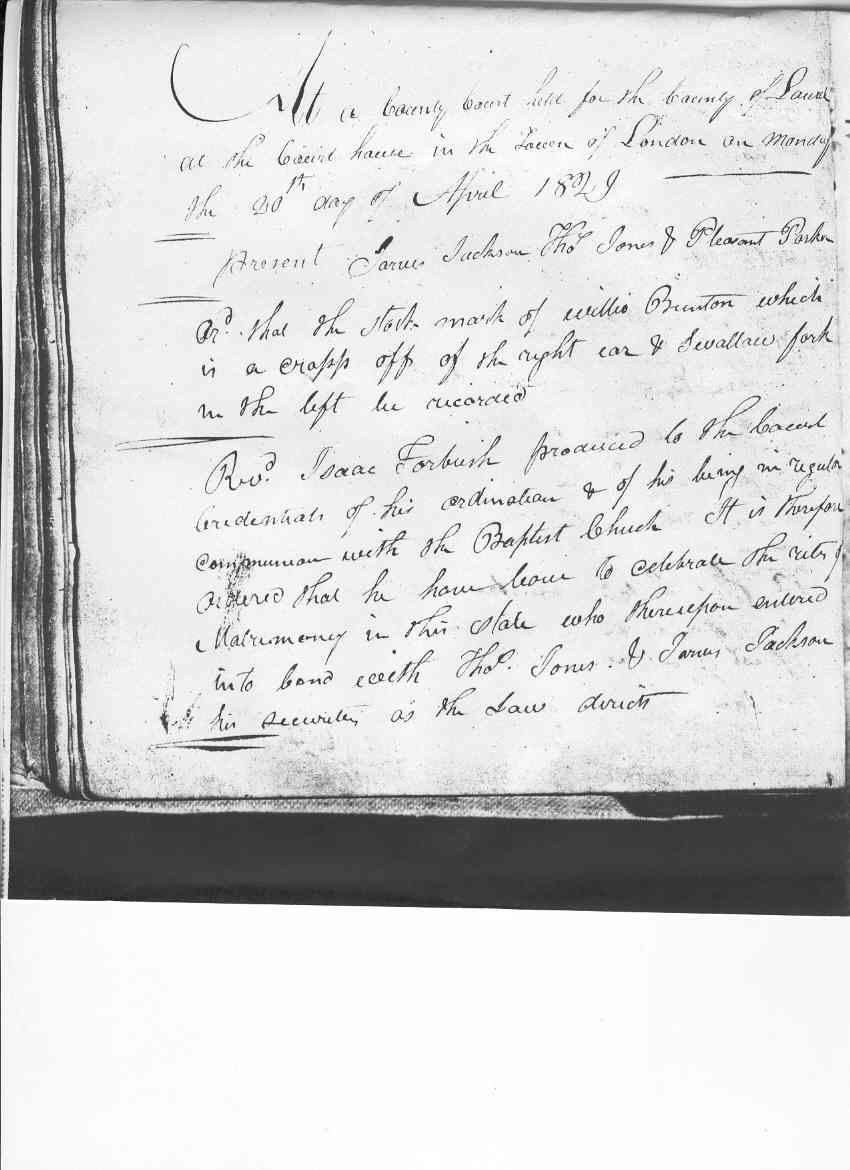 At a County Court held for the County of Laurel
at the Court house in the Town of London on Monday
the 20th day of April 1829
present Jarvis Jackson Thos Jones & Pleasant Parker
Ord. that the stock mark of willis Bunton which
is a crapp off of the right ear & Swallow fork
in the left be recorded
Revd. Isaac Forbush produced to the Court
Credentials of his ordination & of his being in regular
communion with the Baptist Chuch It is therefore
ordered that he have leave to celebrate the rites of
Matrimoney in this state who thereupon entered
into bond with Thos. Jones & Jarvis Jackson
his securites as the Law directs